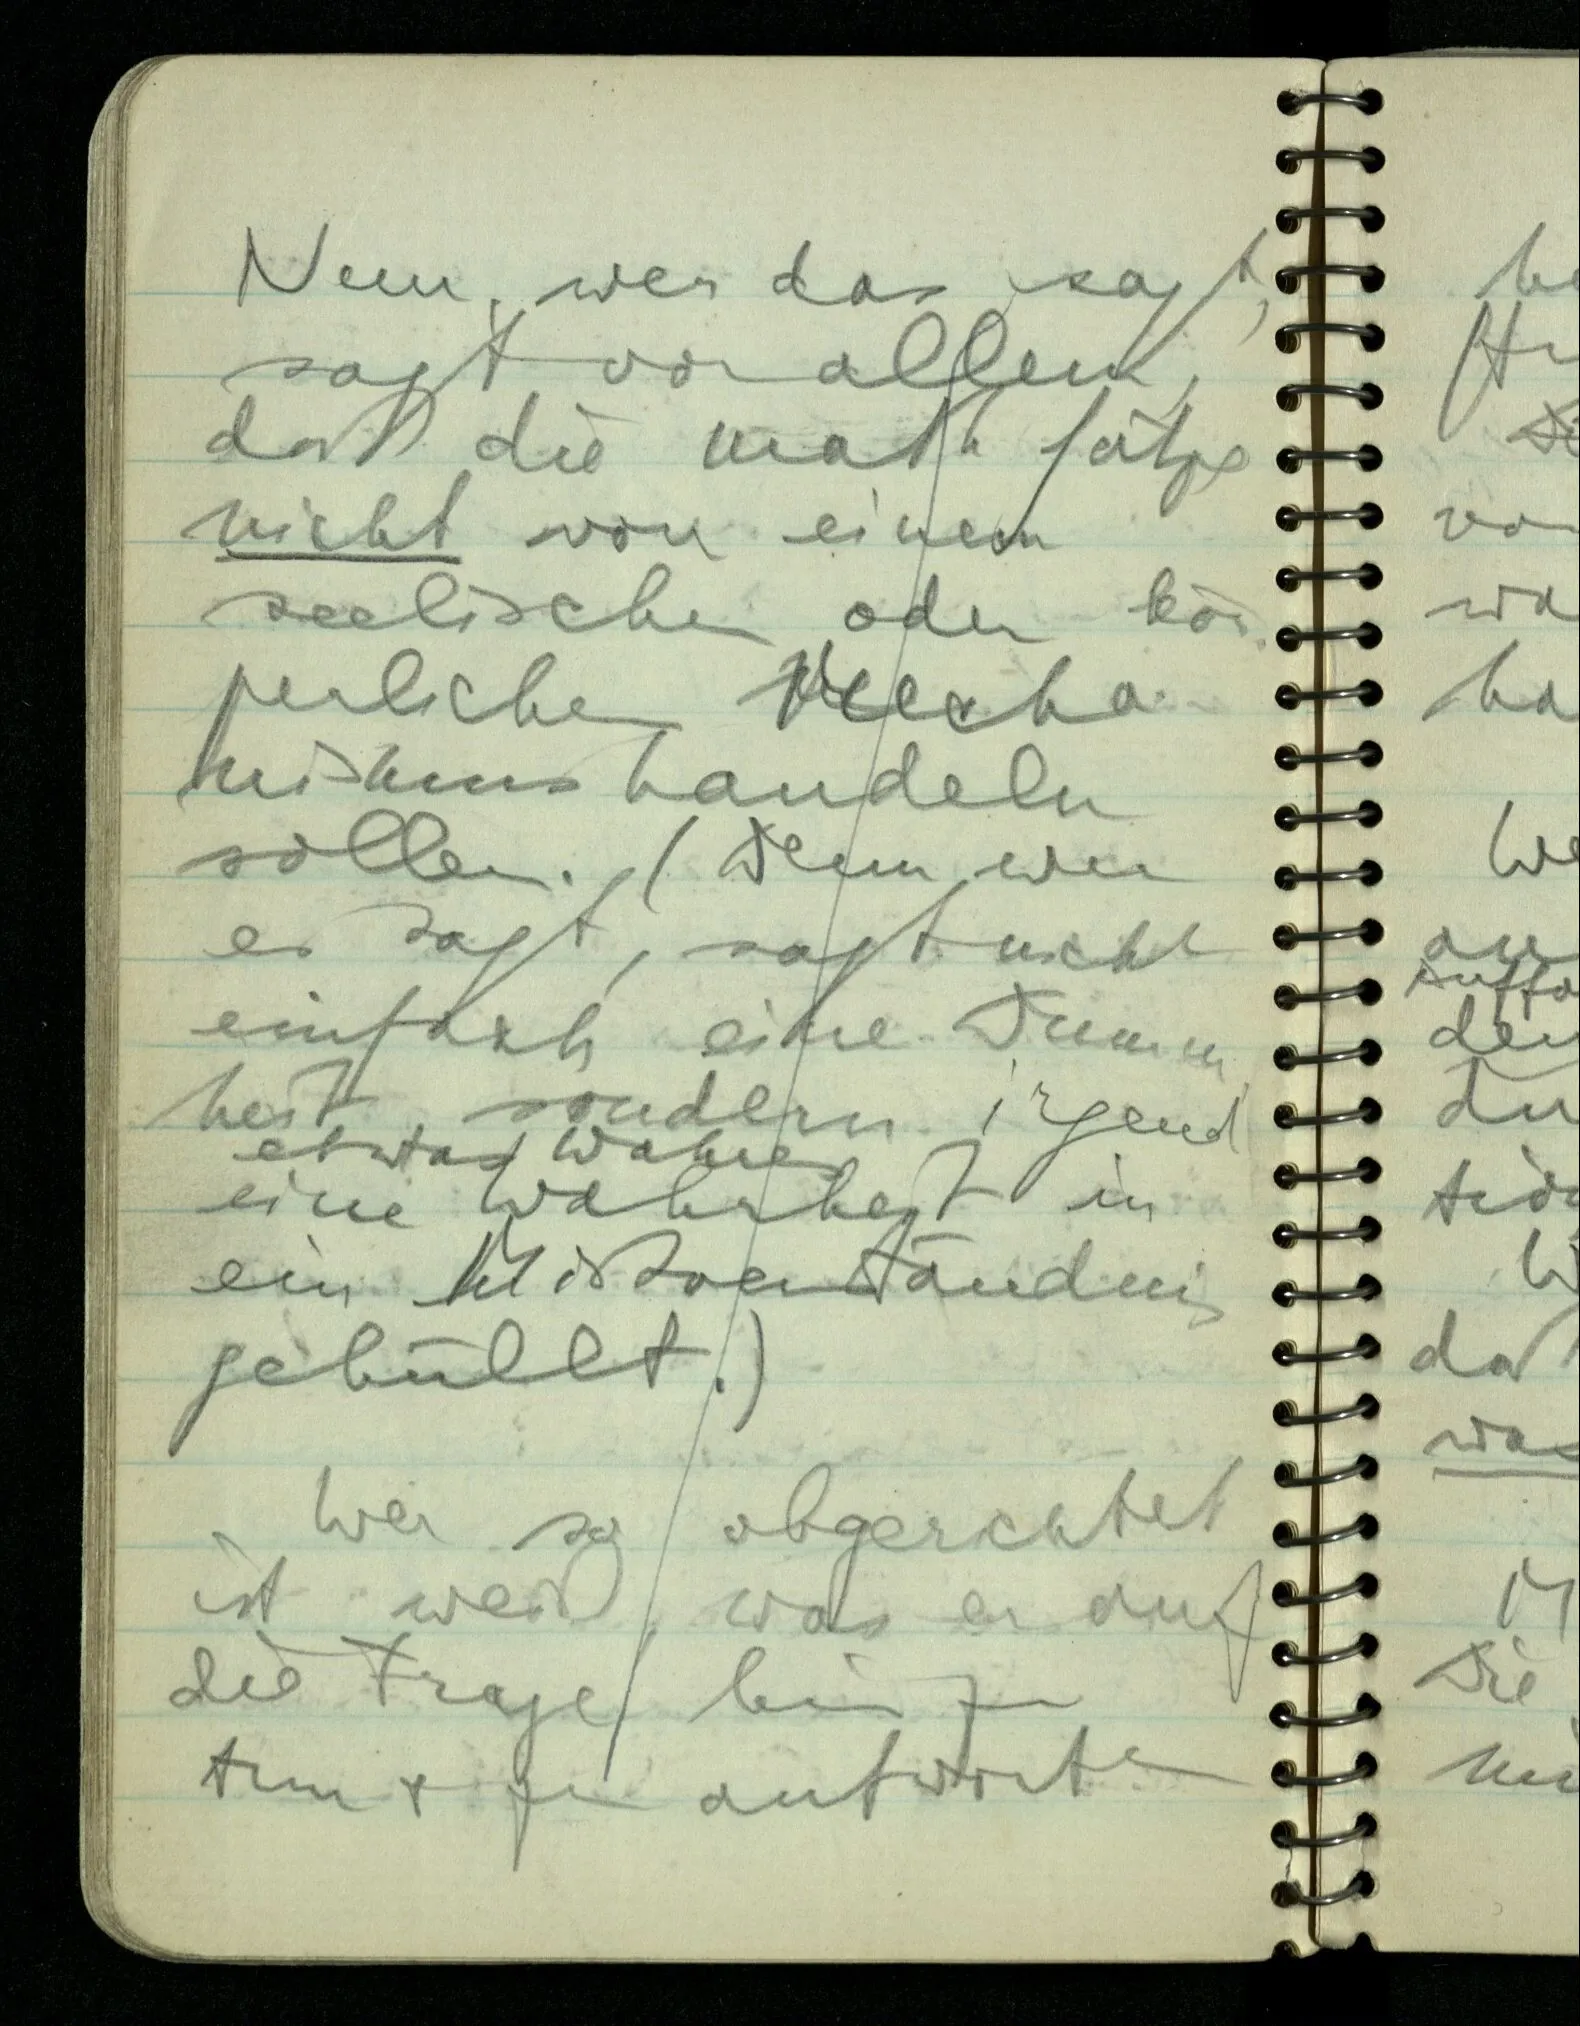 Nun, wer das sagt,
sagt vor allem,
daß die math Sätze
nicht von einem
seelischen oder kör-
perlichen Mecha-
nismus handeln
sollen. (Denn wer
es sagt, sagt nicht
einfach eine Dumm
heit sondern irgend
etwas Wahres
eine Wahrheit in
ein Mißverständnis
gehüllt.)
Wer so abgerichtet
ist weiß, was er auf
die Frage hin zu
tun & zu antworten
he
von
wa
ha
We
den
du
tion
W
daß
was
M
Die